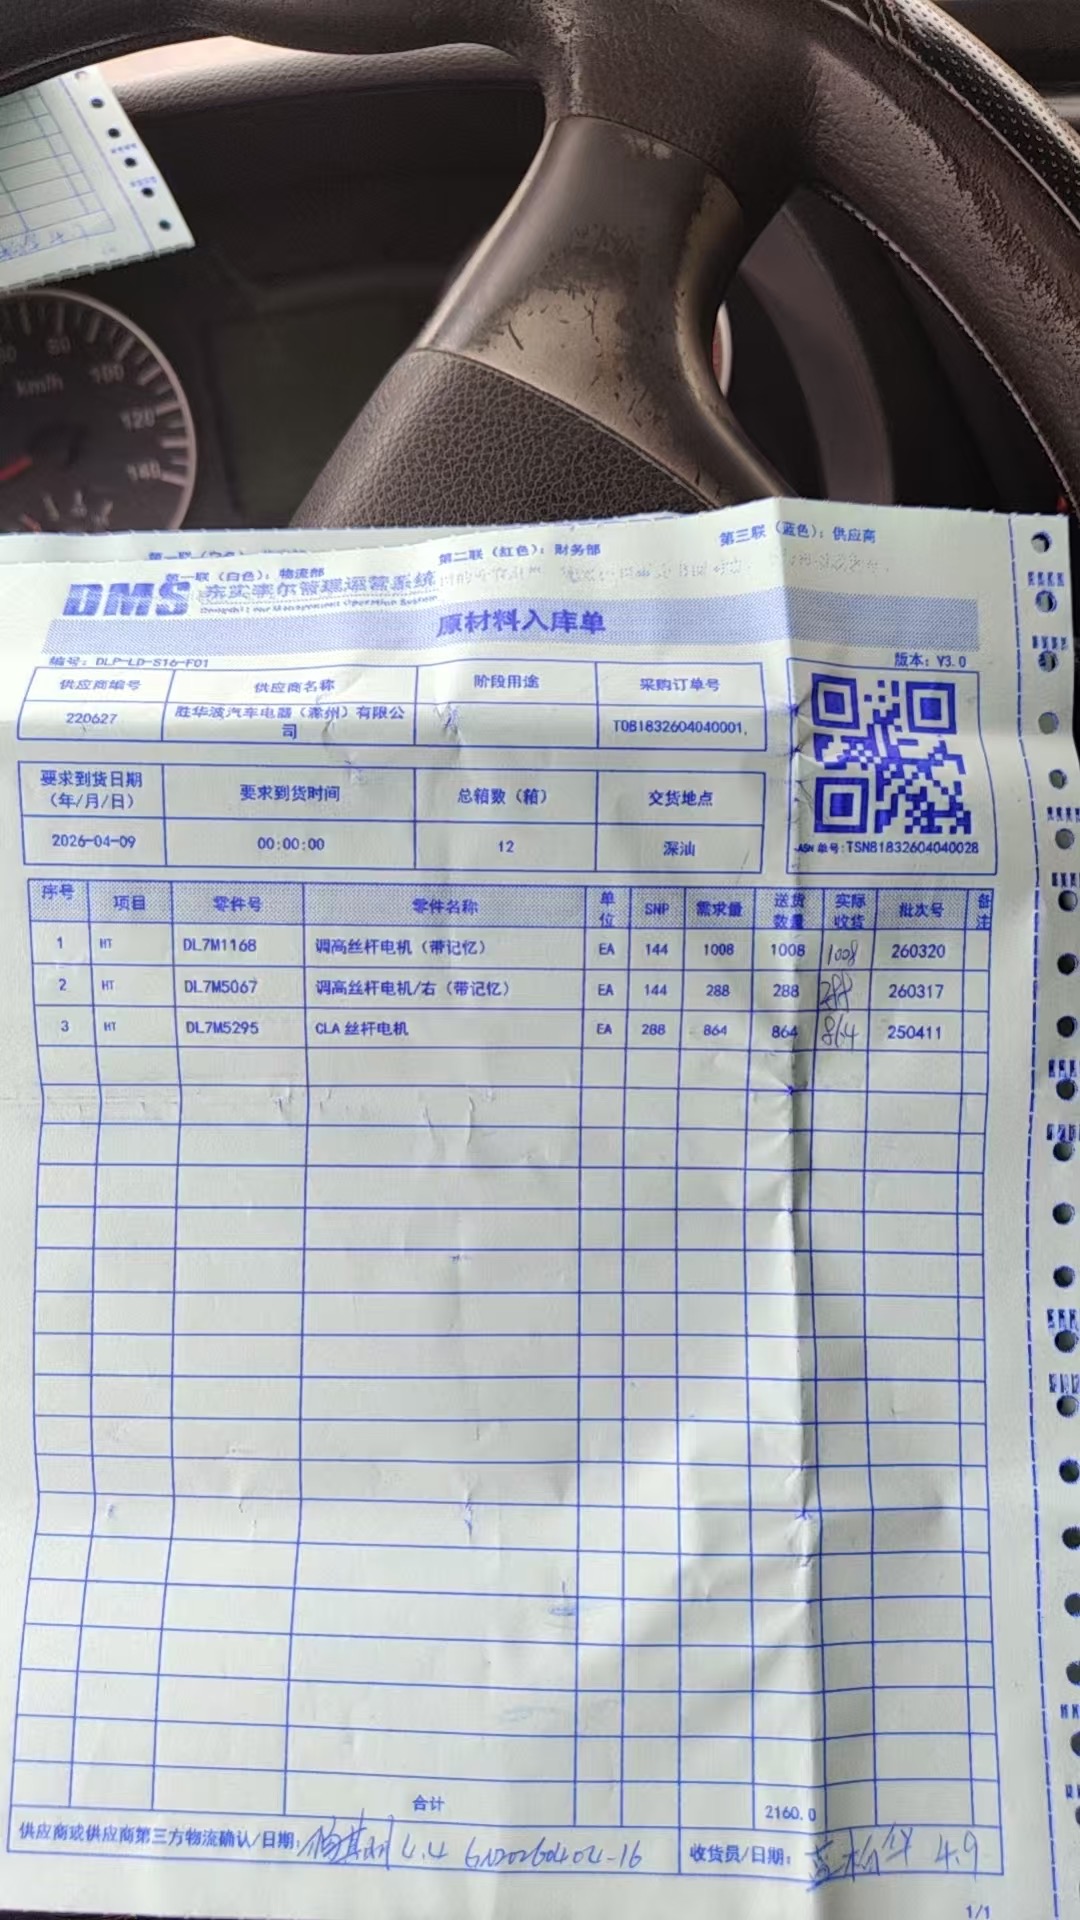 80
100
km/h
120
140
第一联（白色）：物流部
第二联（红色）：财务部
第三联（蓝色）：供应商
DMS 东实李尔管理运营系统
原材料入库单
编号：DLP-LD-S16-F01
版本：V3.0
供应商编号 供应商名称 阶段用途 采购订单号
220627 胜华波汽车电器（滁州）有限公司 T081832604040001,
要求到货日期（年/月/日） 要求到货时间 总箱数（箱） 交货地点
2026-04-09 00:00:00 12 深汕
ASN 单号：TSN81832604040028
序号 项目 零件号 零件名称 单位 SNP 需求量 送货数量 实际收货 批次号 备注
1 HT DL7M1168 调高丝杆电机（带记忆） EA 144 1008 1008 1008 260320
2 HT DL7M5067 调高丝杆电机/右（带记忆） EA 144 288 288 288 260317
3 HT DL7M5295 CLA 丝杆电机 EA 288 864 864 864 250411
合计 2160.0
供应商或供应商第三方物流确认/日期： 4.4 GN20260404-16
收货员/日期： 4.9
1/1